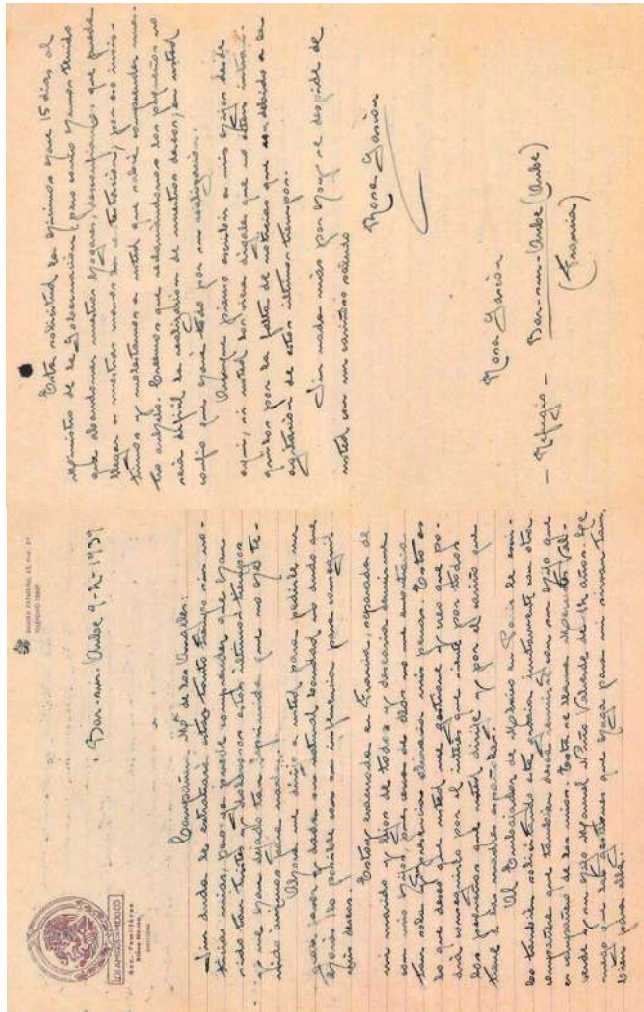 LOS AMIGOS DE MEXICO
Sec. Femenina
Bar-sur-Aube 9-2-1939
Compañera Mª de los Angeles:
Sin duda le extrañará estar tanto tiempo sin no-
ticias mias, pero ya puede comprender que han
sido tan tristes y dolorosos estos ultimos tiempos
y me han dejado tan deprimida que no he te-
nido animos para nada.
Ahora me dirijo a usted para pedirle un
gran favor y dada su natural bondad no dudo que
hará lo posible con su influencia para conseguir
mis deseos.
Estoy evacuada en Francia, separada de
mi marido y lejos de todos y desearia reunirme
con mis hijos, pues cerca de ellos no me encontraria
tan sola y mis penas. Esto es
lo que deseo que usted me gestione y creo que po-
drá conseguirlo por el interés que siente por todos
los pequeños que usted dirije y por el cariño que
tiene a las madres españolas.
Al Embajador de México en Paris le escri-
bo tambien solicitando esta gracia juntamente con otra
compañera que tambien desea reunirse con su hijo que
es compañero de los mios. Esta se llama Val-
verde y su hijo Manuel Niño Valverde de 14 años. Le
ruego que las gestiones que haga para mi sirvan tam-
bien para ella.
Esta solicitud la hicimos hace 15 dias al
Ministro de la Gobernación, pero como hemos tenido
que abandonar nuestros hogares, desconfiamos que pueda
llegar a nuestras manos la contestacion, por eso insis-
timos y molestamos a usted que sabrá comprender nues-
tro anhelo. Creemos que reclamandonos los pequeños no
será dificil la realizacion de nuestros deseos; en usted
confio que hará todo por su realización.
Aunque pienso escribir a mis hijos desde
aqui, si usted los viera digales que no esten intran-
quilos por la falta de noticias que es debido a la
agitacion de estos ultimos tiempos.
Sin nada mas por hoy se despide de
usted con un cariñoso saludo
Rosa Garcia
Rosa Garcia
- Refugio - Bar-sur-Aube (Aube)
(Francia)